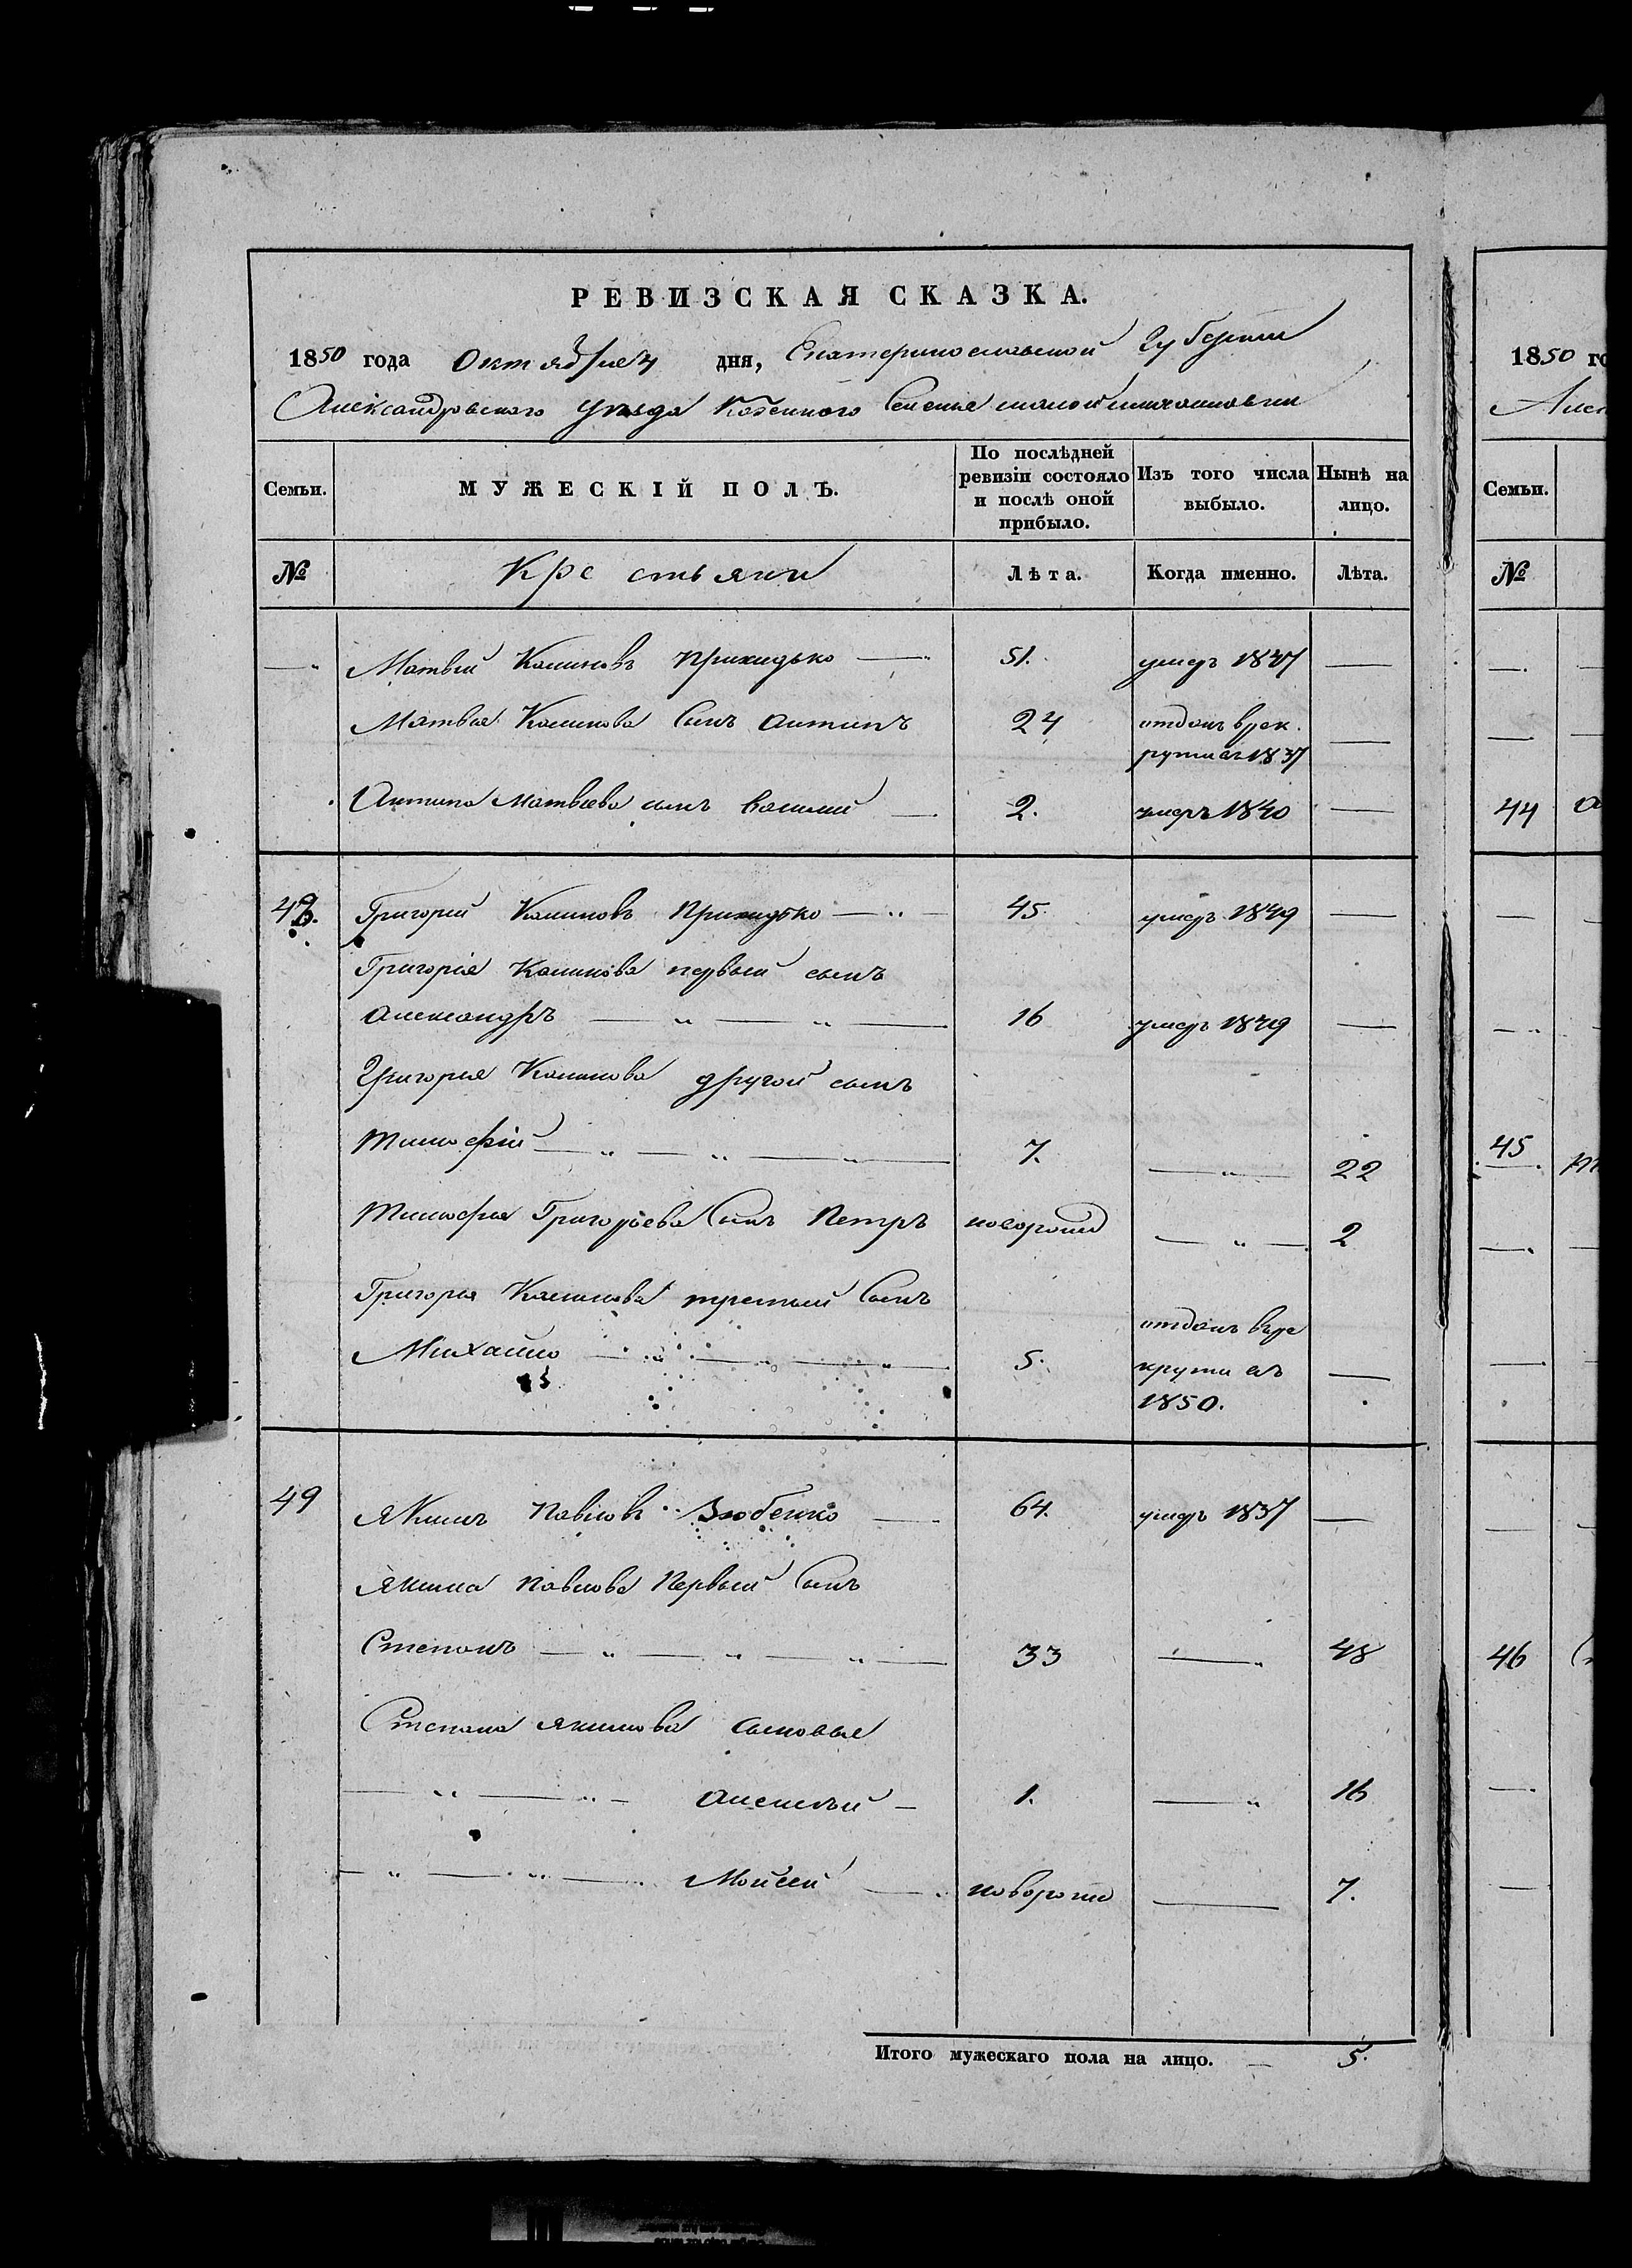 РЕВИЗСКАЯ СКАЗКА.
1850 года Октября 4 дня, Екатеринославской Губернии
Александровскаго Уезда Казенного Селенья
Семьи. МУЖЕСКІЙ ПОЛЪ. По послѣдней ревизіи состояло и послѣ оной прибыло. Изъ того числа выбыло. Нынѣ на лицо.
№ Крестьяни Лѣта. Когда именно. Лѣта.
Матвей Калиновъ Прихидько 51. умеръ 1847
Матвея Калинова Сынъ Антипъ 24 отданъ врек.
руты въ 1837
Антипа Матвеева сынъ Василий 2. умеръ 1840
Григорий Калиновъ Прихидько 45. умеръ 1849
Григорія Калинова первый сынъ
Александръ 16 умеръ 1849
Григория Калинова другой сынъ
Тимофій 7. 22
Тимофея Григорьева Сынъ Петръ 2
Григория Калинова третий Сынъ
Михайло 5. отданъ въре
круты въ
1850.
49 Якимъ Павловъ Зюбенко 64. умеръ 1837
Якима Павлова Первый Сынъ
Степанъ 33 48
Степана Якимова Сыновья
Алексей 1. 16
Мойсей 7.
Итого мужескаго пола на лицо. 5.
1850 го
Семьи.
№
44
45
46